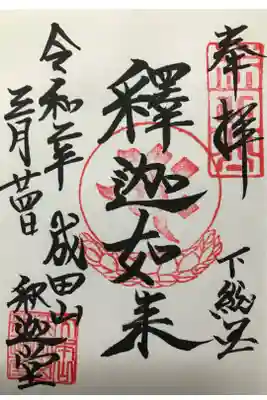 奉拝
下総国
釋迦如来
令和二年
三月廿四日
成田山
釈迦堂